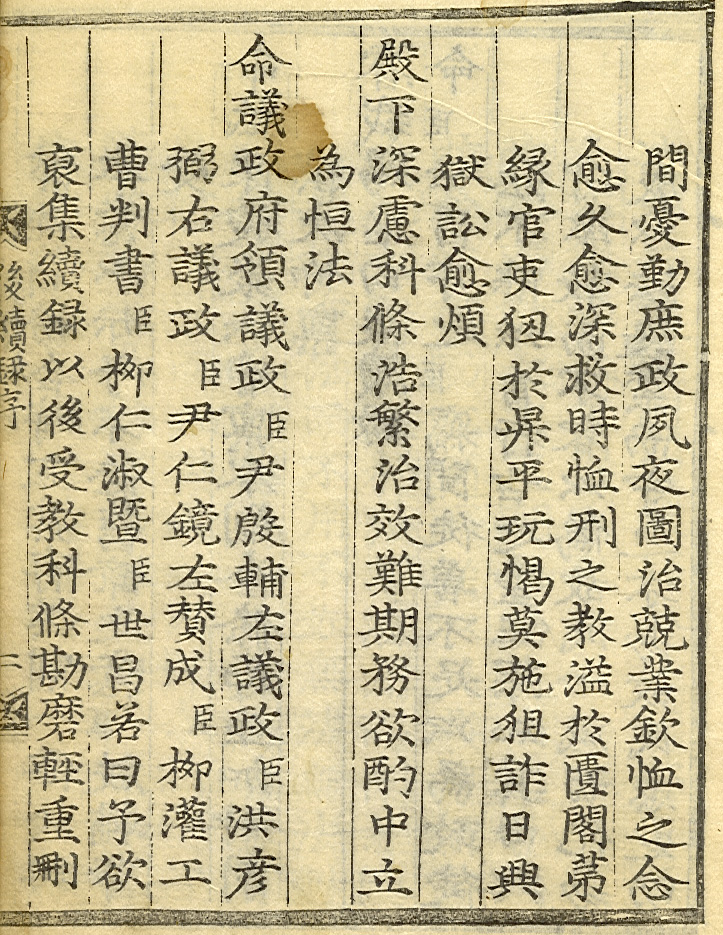 間憂勤庶政夙夜圖治兢業欽恤之念
愈久愈深救時恤刑之教溢於匱閣苐
縁官吏狃於昇平玩愒莫施狙詐日興
獄訟愈煩
殿下深慮科條浩繁治效難期務欲酌中立
為恒法
命議政府領議政臣尹殷輔左議政臣洪彦
弼右議政臣尹仁鏡左賛成臣柳灌工
曹判書臣柳仁淑暨臣世昌若曰予欲
裒集續録以後受教科條勘磨輕重刪
後續録序 二